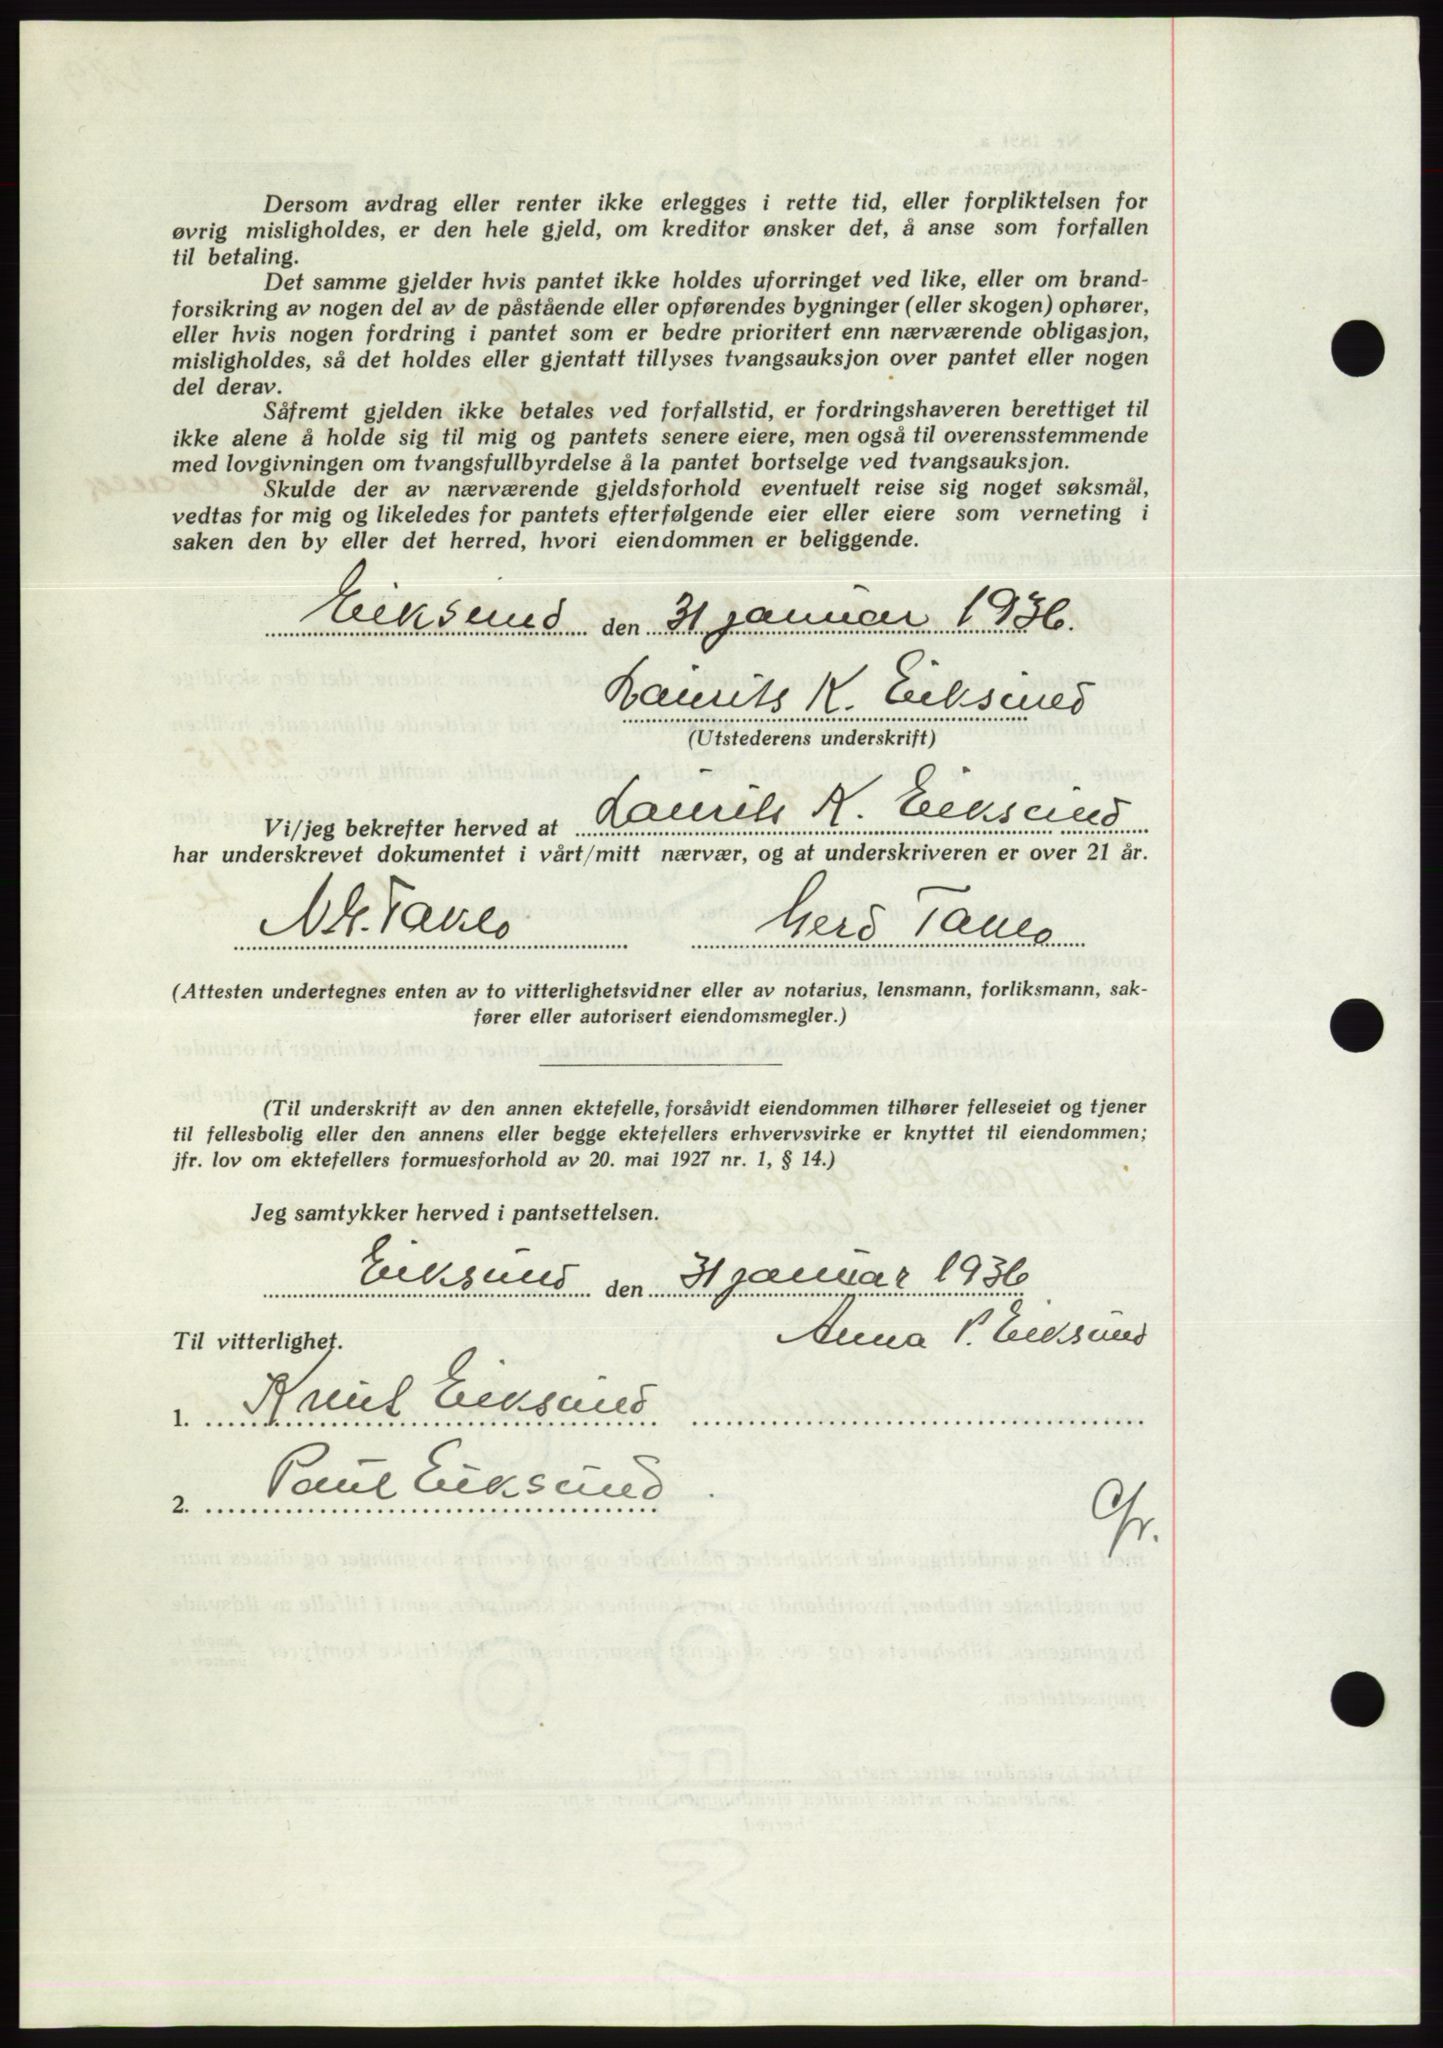 Dersom avdrag eller renter ikke erlegges i rette tid, eller forpliktelsen for
øvrig misligholdes, er den hele gjeld, om kreditor ønsker det, å anse som forfallen
til betaling.
Det samme gjelder hvis pantet ikke holdes uforringet ved like, eller om brand-
forsikring av nogen del av de påstående eller opførendes bygninger (eller skogen) ophører,
eller hvis nogen fordring i pantet som er bedre prioritert enn nærværende obligasjon,
misligholdes, så det holdes eller gjentatt tillyses tvangsauksjon over pantet eller nogen
del derav.
Såfremt gjelden ikke betales ved forfallstid, er fordringshaveren berettiget til
ikke alene å holde sig til mig og pantets senere eiere, men også til overensstemmende
med lovgivningen om tvangsfullbyrdelse å la pantet bortselge ved tvangsauksjon.
Skulde der av nærværende gjeldsforhold eventuelt reise sig noget søksmål,
vedtas for mig og likeledes for pantets efterfølgende eier eller eiere som verneting i
saken den by eller det herred, hvori eiendommen er beliggende.
Eiksund den 31 januar 1936.
Laurits K. Eiksund
(Utstederens underskrift)
Vi/jeg bekrefter herved at Laurits K. Eiksund
har underskrevet dokumentet i vårt/mitt nærvær, og at underskriveren er over 21 år.
Gerd
(Attesten undertegnes enten av to vitterlighetsvidner eller av notarius, lensmann, forliksmann, sak-
fører eller autorisert eiendomsmegler.)
(Til underskrift av den annen ektefelle, forsåvidt eiendommen tilhører felleseiet og tjener
til fellesbolig eller den annens eller begge ektefellers erhvervsvirke er knyttet til eiendommen;
jfr. lov om ektefellers formuesforhold av 20. mai 1927 nr. 1, § 14.)
Jeg samtykker herved i pantsettelsen.
Eiksund den 31 januar 1936
Anna P. Eiksund
Til vitterlighet.
1. Knut Eiksund
2. Paul Eiksund